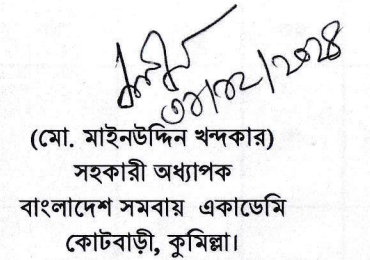 (মো. মাইনউদ্দিন খন্দকার)
সহকারী অধ্যাপক
বাংলাদেশ সমবায় একাডেমি
কোটবাড়ী, কুমিল্লা।